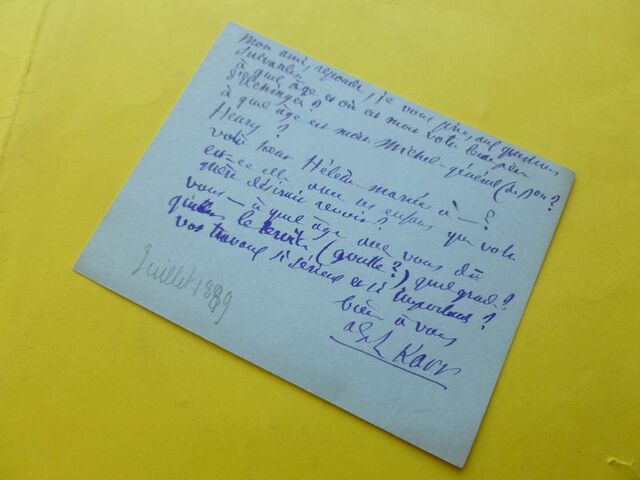 Mon ami, repondez, je vous prie, aux questions
suivantes
à quel âge et où est mort votre
à quel âge est mort Michel général (
Henry?
votre soeur Hélène mariée à — ?
est-ce elle avec ses enfants que votre
mère désirait revoir?
vous — à quel âge avez vous dû
quitter le service (goutte?) quel grade?
vos travaux si sérieux et si importants?
bien à vous
alph Karr
Juillet 1889